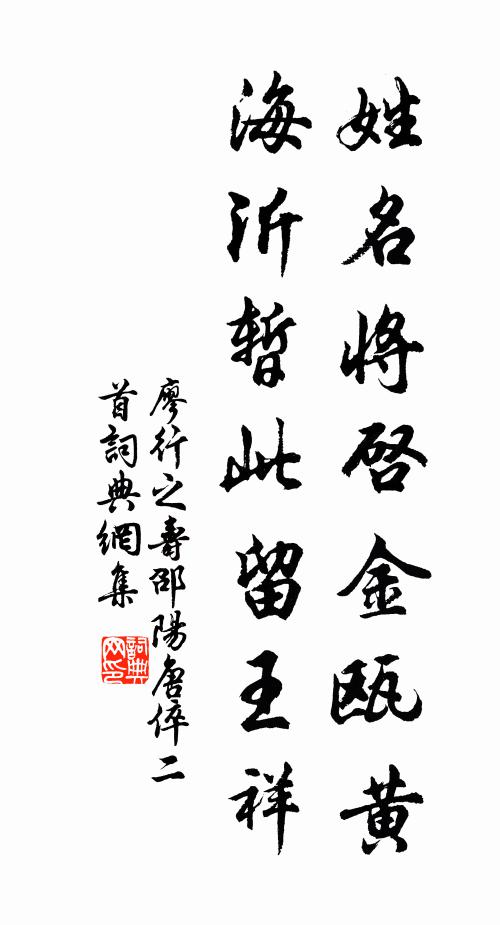 姓名將啓金甌黄
海沂暫此留王祥
廖行之壽邵陽唐倅二
首詞典網集
詞典
网印